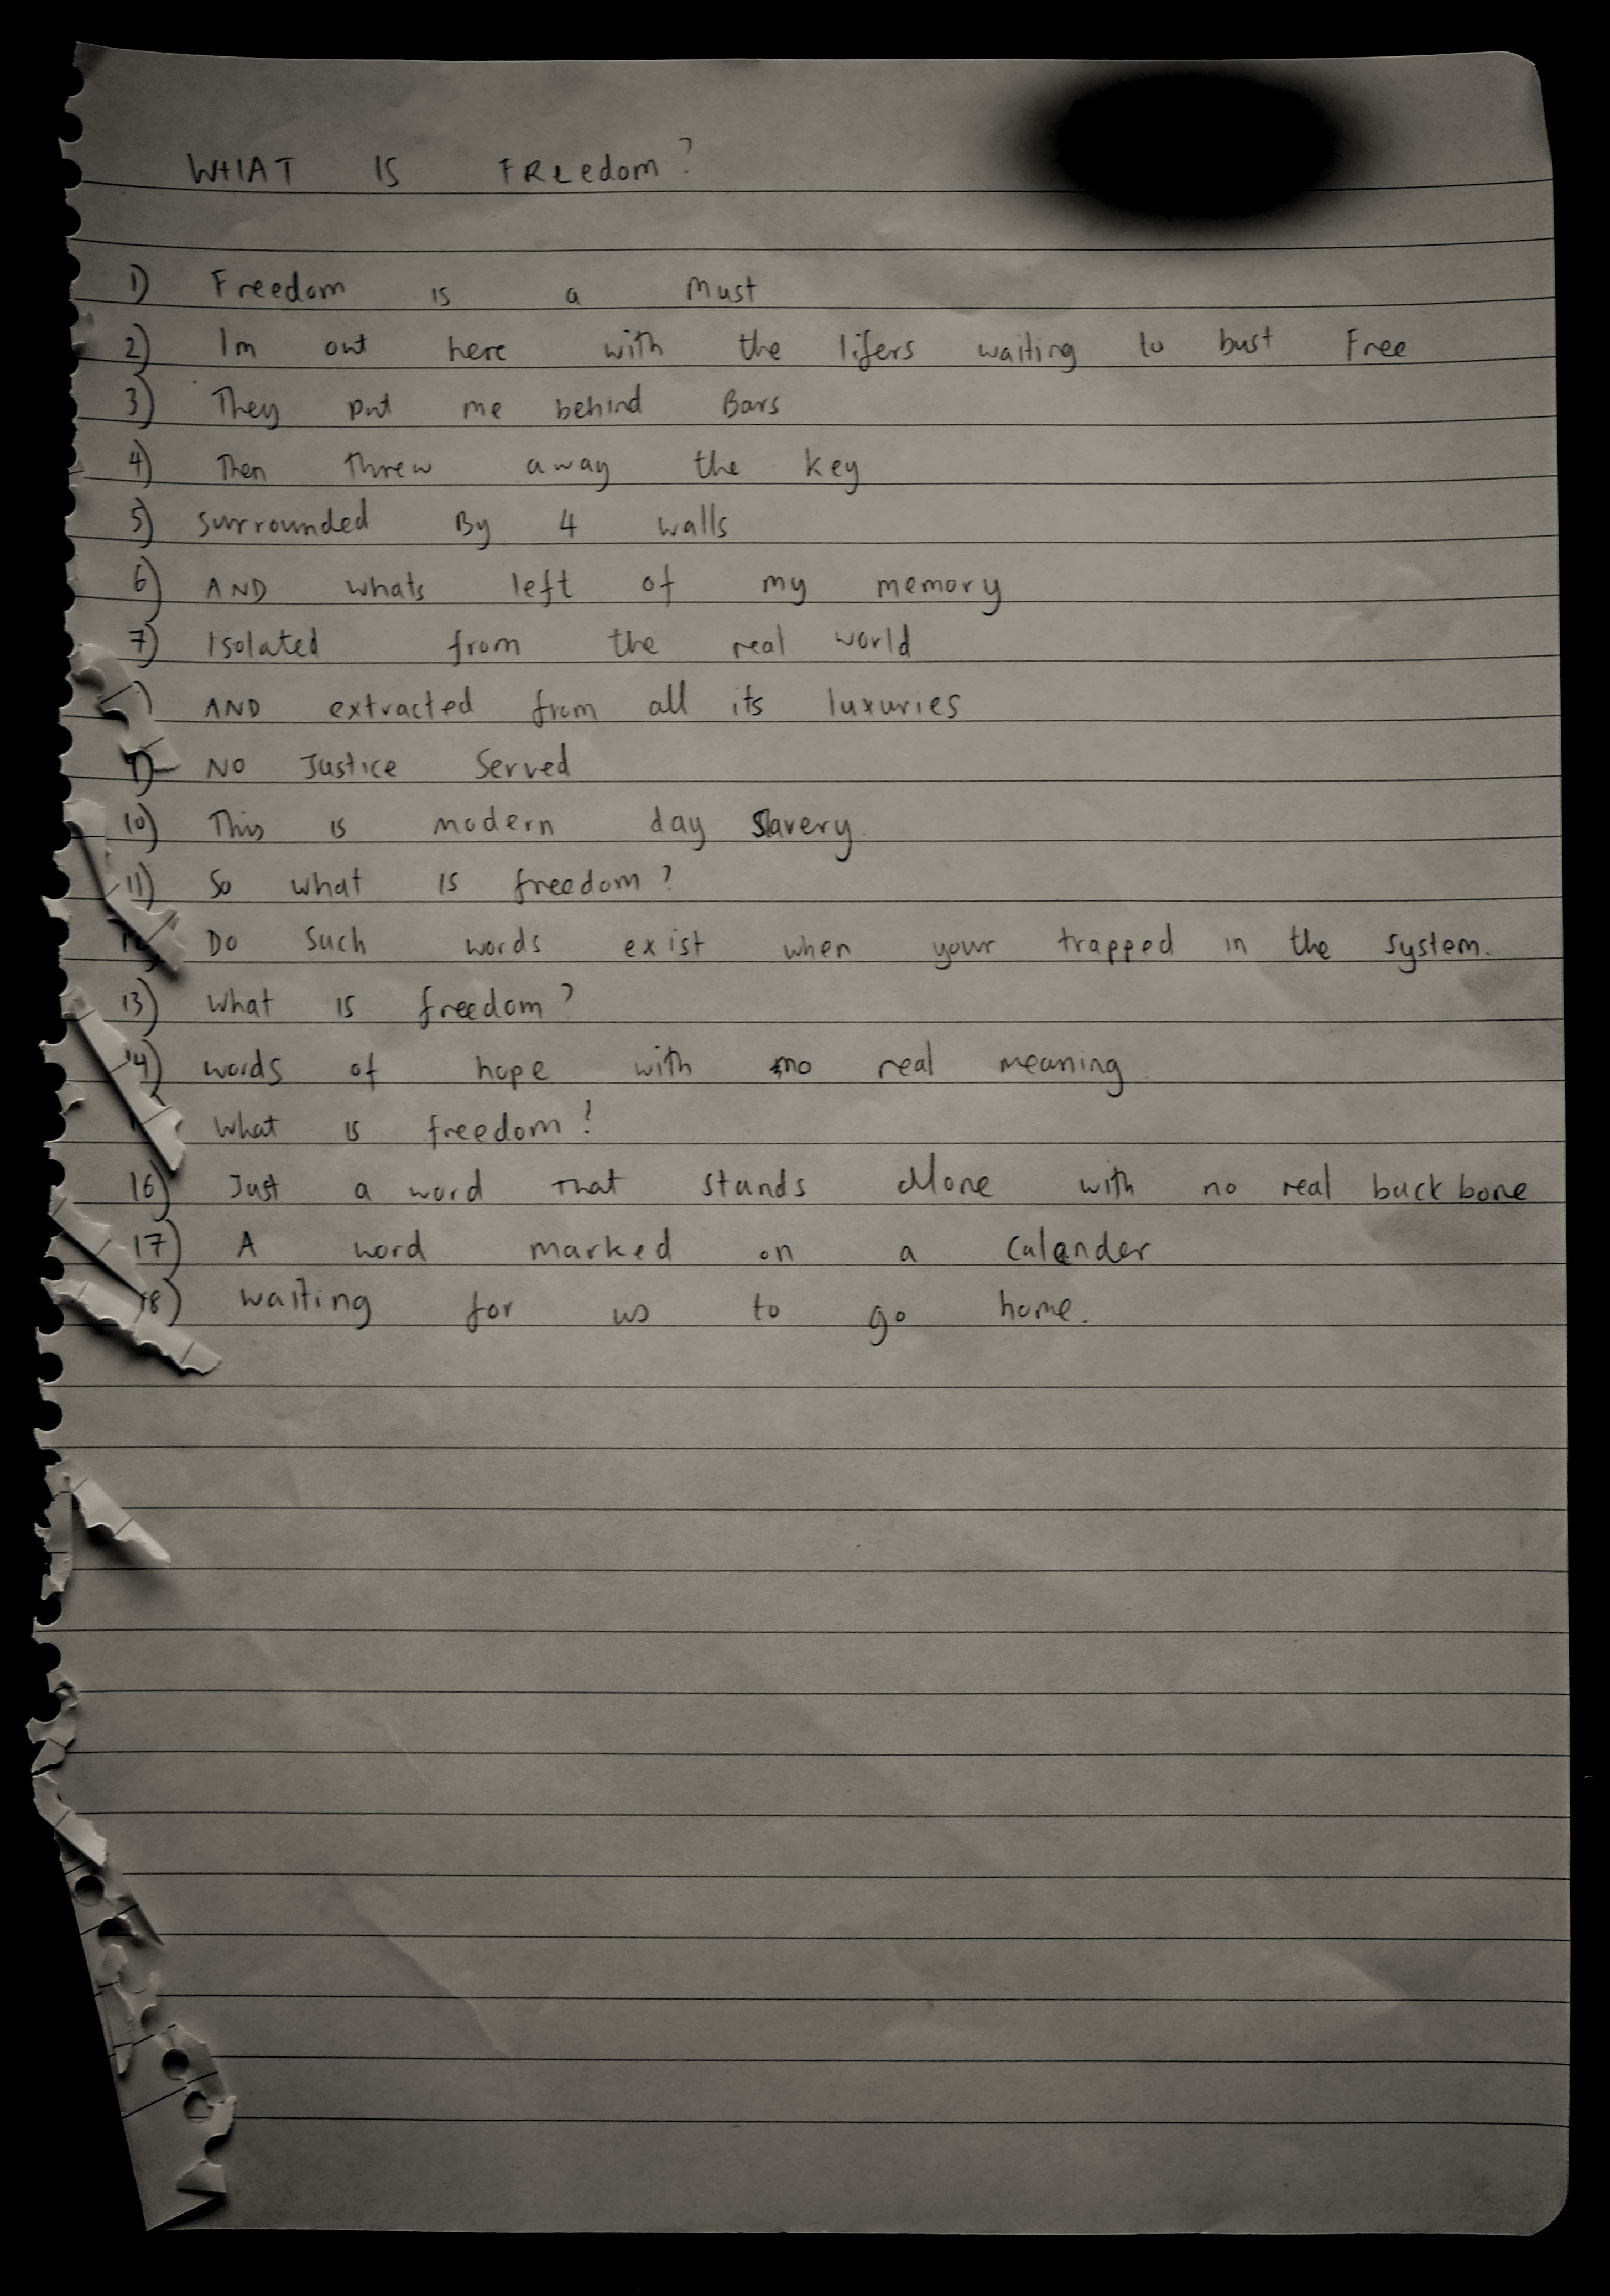 WHAT IS FREEdom?
1) Freedom is a Must
2) Im out here with the lifers waiting to bust Free
3) They put me behind Bars
4) Then threw away the key
5) surrounded By 4 walls
6) AND whats left of my memory
7) Isolated from the real world
) AND extracted from all its luxuries
9) NO Justice Served
10) This is modern day Slavery.
11) So what is freedom?
12) Do such words exist when your trapped in the system.
13) What is freedom?
14) words of hope with no real meaning.
What is freedom?
16) Just a word that stands Alone with no real backbone
17) A word marked on a Calander
18) waiting for us to go home.